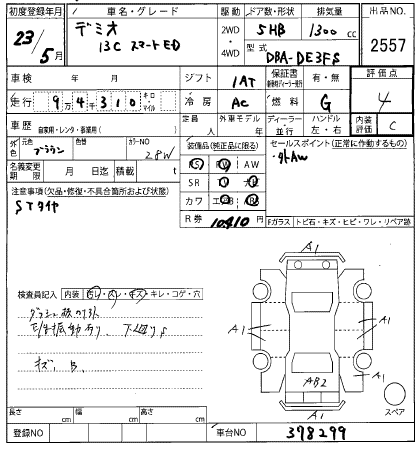 初度登録年月 車名・グレード 駆動 ドア数・形状 排気量 出品NO.
23/5月 デミオ 13C スマートED 2WD 4WD 5HB 1300cc 2557
型式 DBA-DE3FS
車検 年 月 シフト 1AT 保証書 有・無 評価点
走行 9万4千310 キロ・マイル 冷房 AC 燃料 G 4
車歴 自家用・レンタ・事業用( ) 定員 人 外車モデル 年 ディーラー・並行 ハンドル 左・右 内装評価 C
外色 元色 ブラウン 色替 カラーNO 28W 装備品(純正品に限る) セールスポイント(正常に作動するもの)
SJ PW AW ・外AW
名義変更期限 月 日迄 積載 t SR ナビ
注意事項(欠品・修復・不具合箇所および状態) カワ エアB
STタイヤ R券 10410 Fガラス トビ石・キズ・ヒビ・ワレ・リペア跡
A1
検査員記入 内装 ヨレ・スレ・キズ・キレ・コゲ・穴
A1 A1
下廻りサ
A1
キズ、B AB2
スペア
A1
長さ cm 幅 cm 高さ cm
登録NO 車台NO 378299